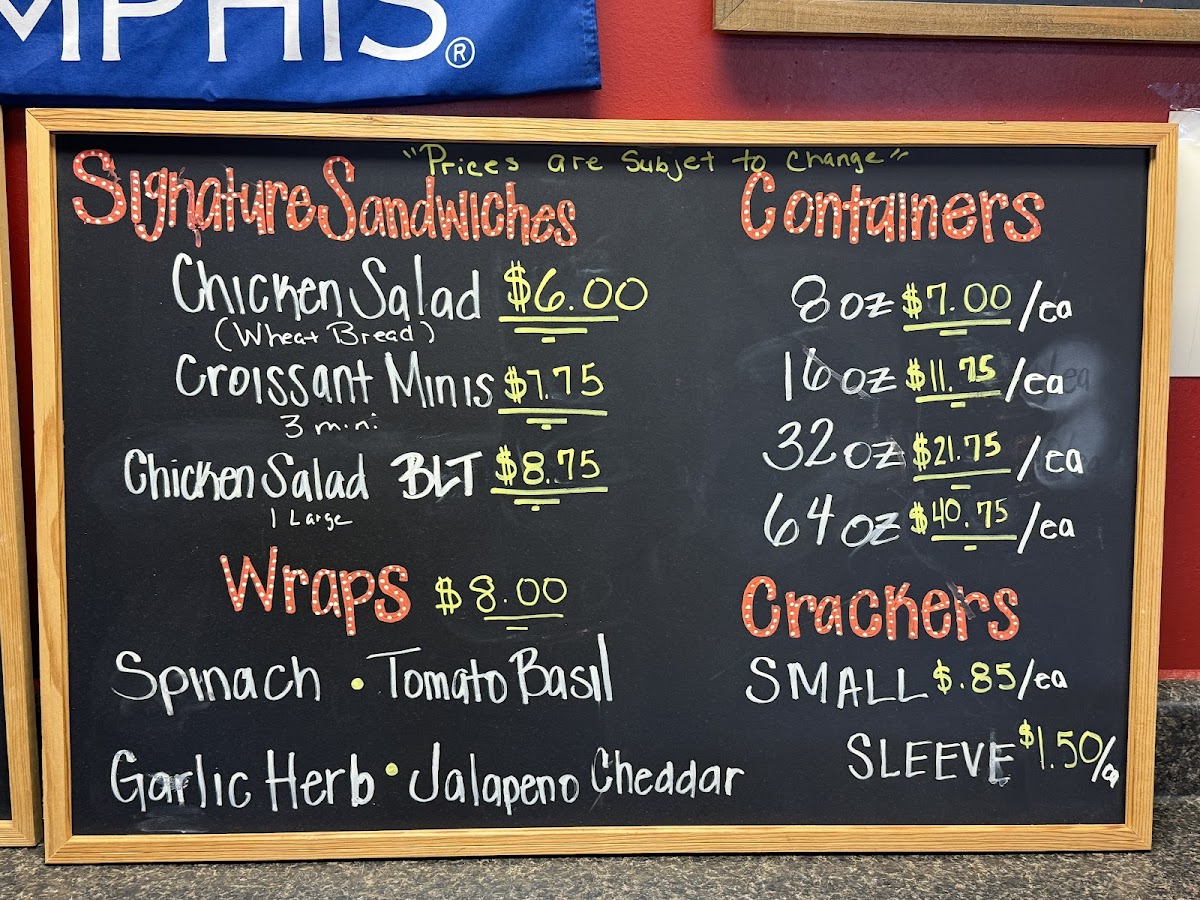 MPHIS®
"Prices are Subjet to change"
Signature Sandwiches
Chicken Salad $6.00
(Wheat Bread)
Croissant Minis $7.75
3 mini
Chicken Salad BLT $8.75
1 Large
Wraps $8.00
Spinach • Tomato Basil
Garlic Herb • Jalapeno Cheddar
Containers
8 oz $7.00/ea
16 oz $11.75/ea
32 oz $21.75/ea
64 oz $40.75/ea
Crackers
SMALL $.85/ea
SLEEVE $1.50/ea